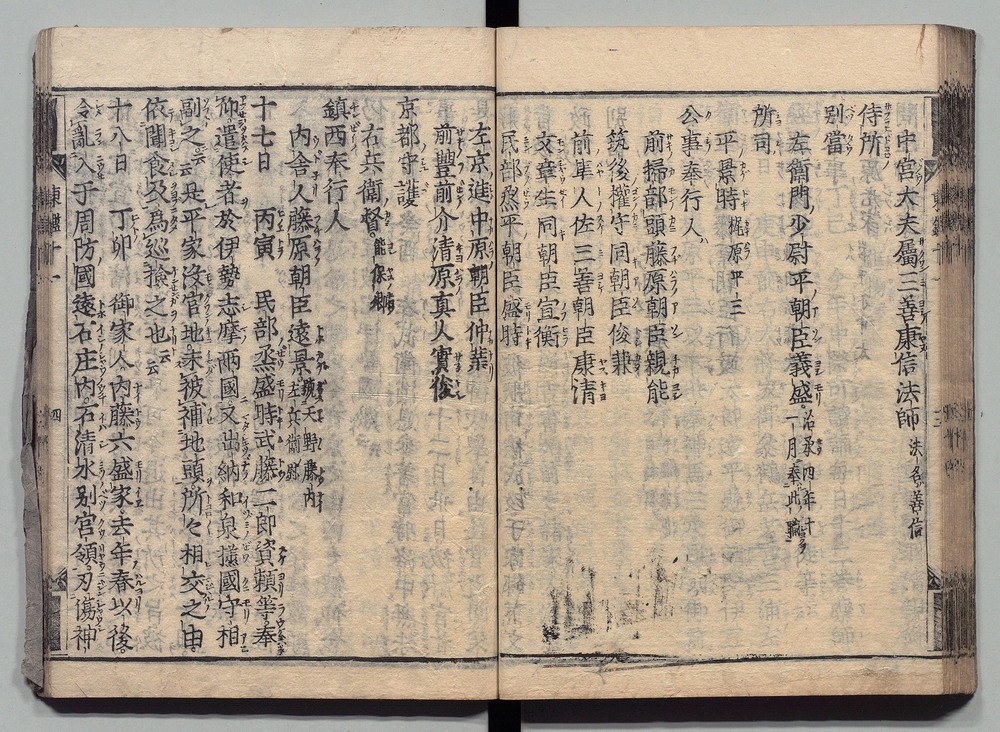 中宮大夫属三善康信法師 法名善信
侍所
別當
左衛門少尉平朝臣義盛 治承四年十一月奉此職
所司
平景時 梶原平三
公事奉行人
前掃部頭藤原朝臣親能
筑後權守同朝臣俊兼
前隼人佐三善朝臣康清
文章生同朝臣宣衡
民部烝平朝臣盛時
左京進中原朝臣仲業
前豐前介清原真人實俊
京都守護
右兵衛督 能保卿
鎮西奉行人
内舎人藤原朝臣遠景 號天野藤内左兵衛尉
十七日 丙寅 民部烝盛時武藤二郎資頼等奉
仰遣使者於伊勢志摩兩國又出納和泉㩜國守相
副之云云是平家没官地未被補地頭所々相交之由
依聞食及為巡撿之也云云
十八日 丁卯 御家人内藤六盛家去年春以後
令亂入于周防國遠石庄内石清水別宮領刃傷神
東鑑十一
四